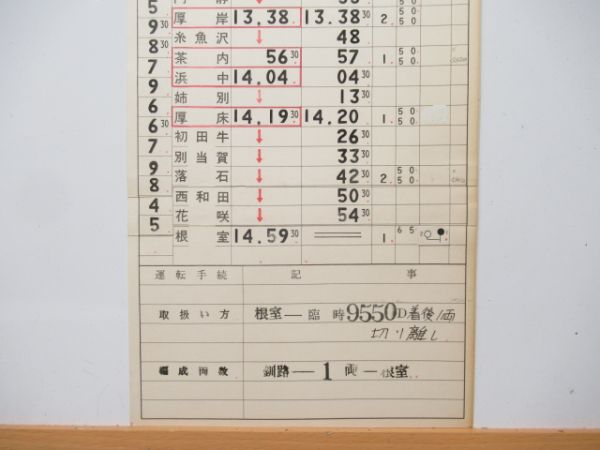 5
厚岸 13.38 13.38 30 2. 50 50
9 30
糸魚沢 ↓ 48
8 30
茶内 56 30 57 1. 50 50
7
浜中 14.04 04 30
9
姉別 ↓ 13 30
9
厚床 14.19 30 14.20 1. 50 50
6 30
初田牛 ↓ 26 30
7
別当賀 ↓ 33 30
9
落石 ↓ 42 30 2. 50 50
8
西和田 ↓ 50 30
4
花咲 ↓ 54 30
5
根室 14.59 30 1. 65
運転手続 記 事
取扱い方 根室—臨時9550D着後1両
切り離し
編成両数 釧路—1両—根室